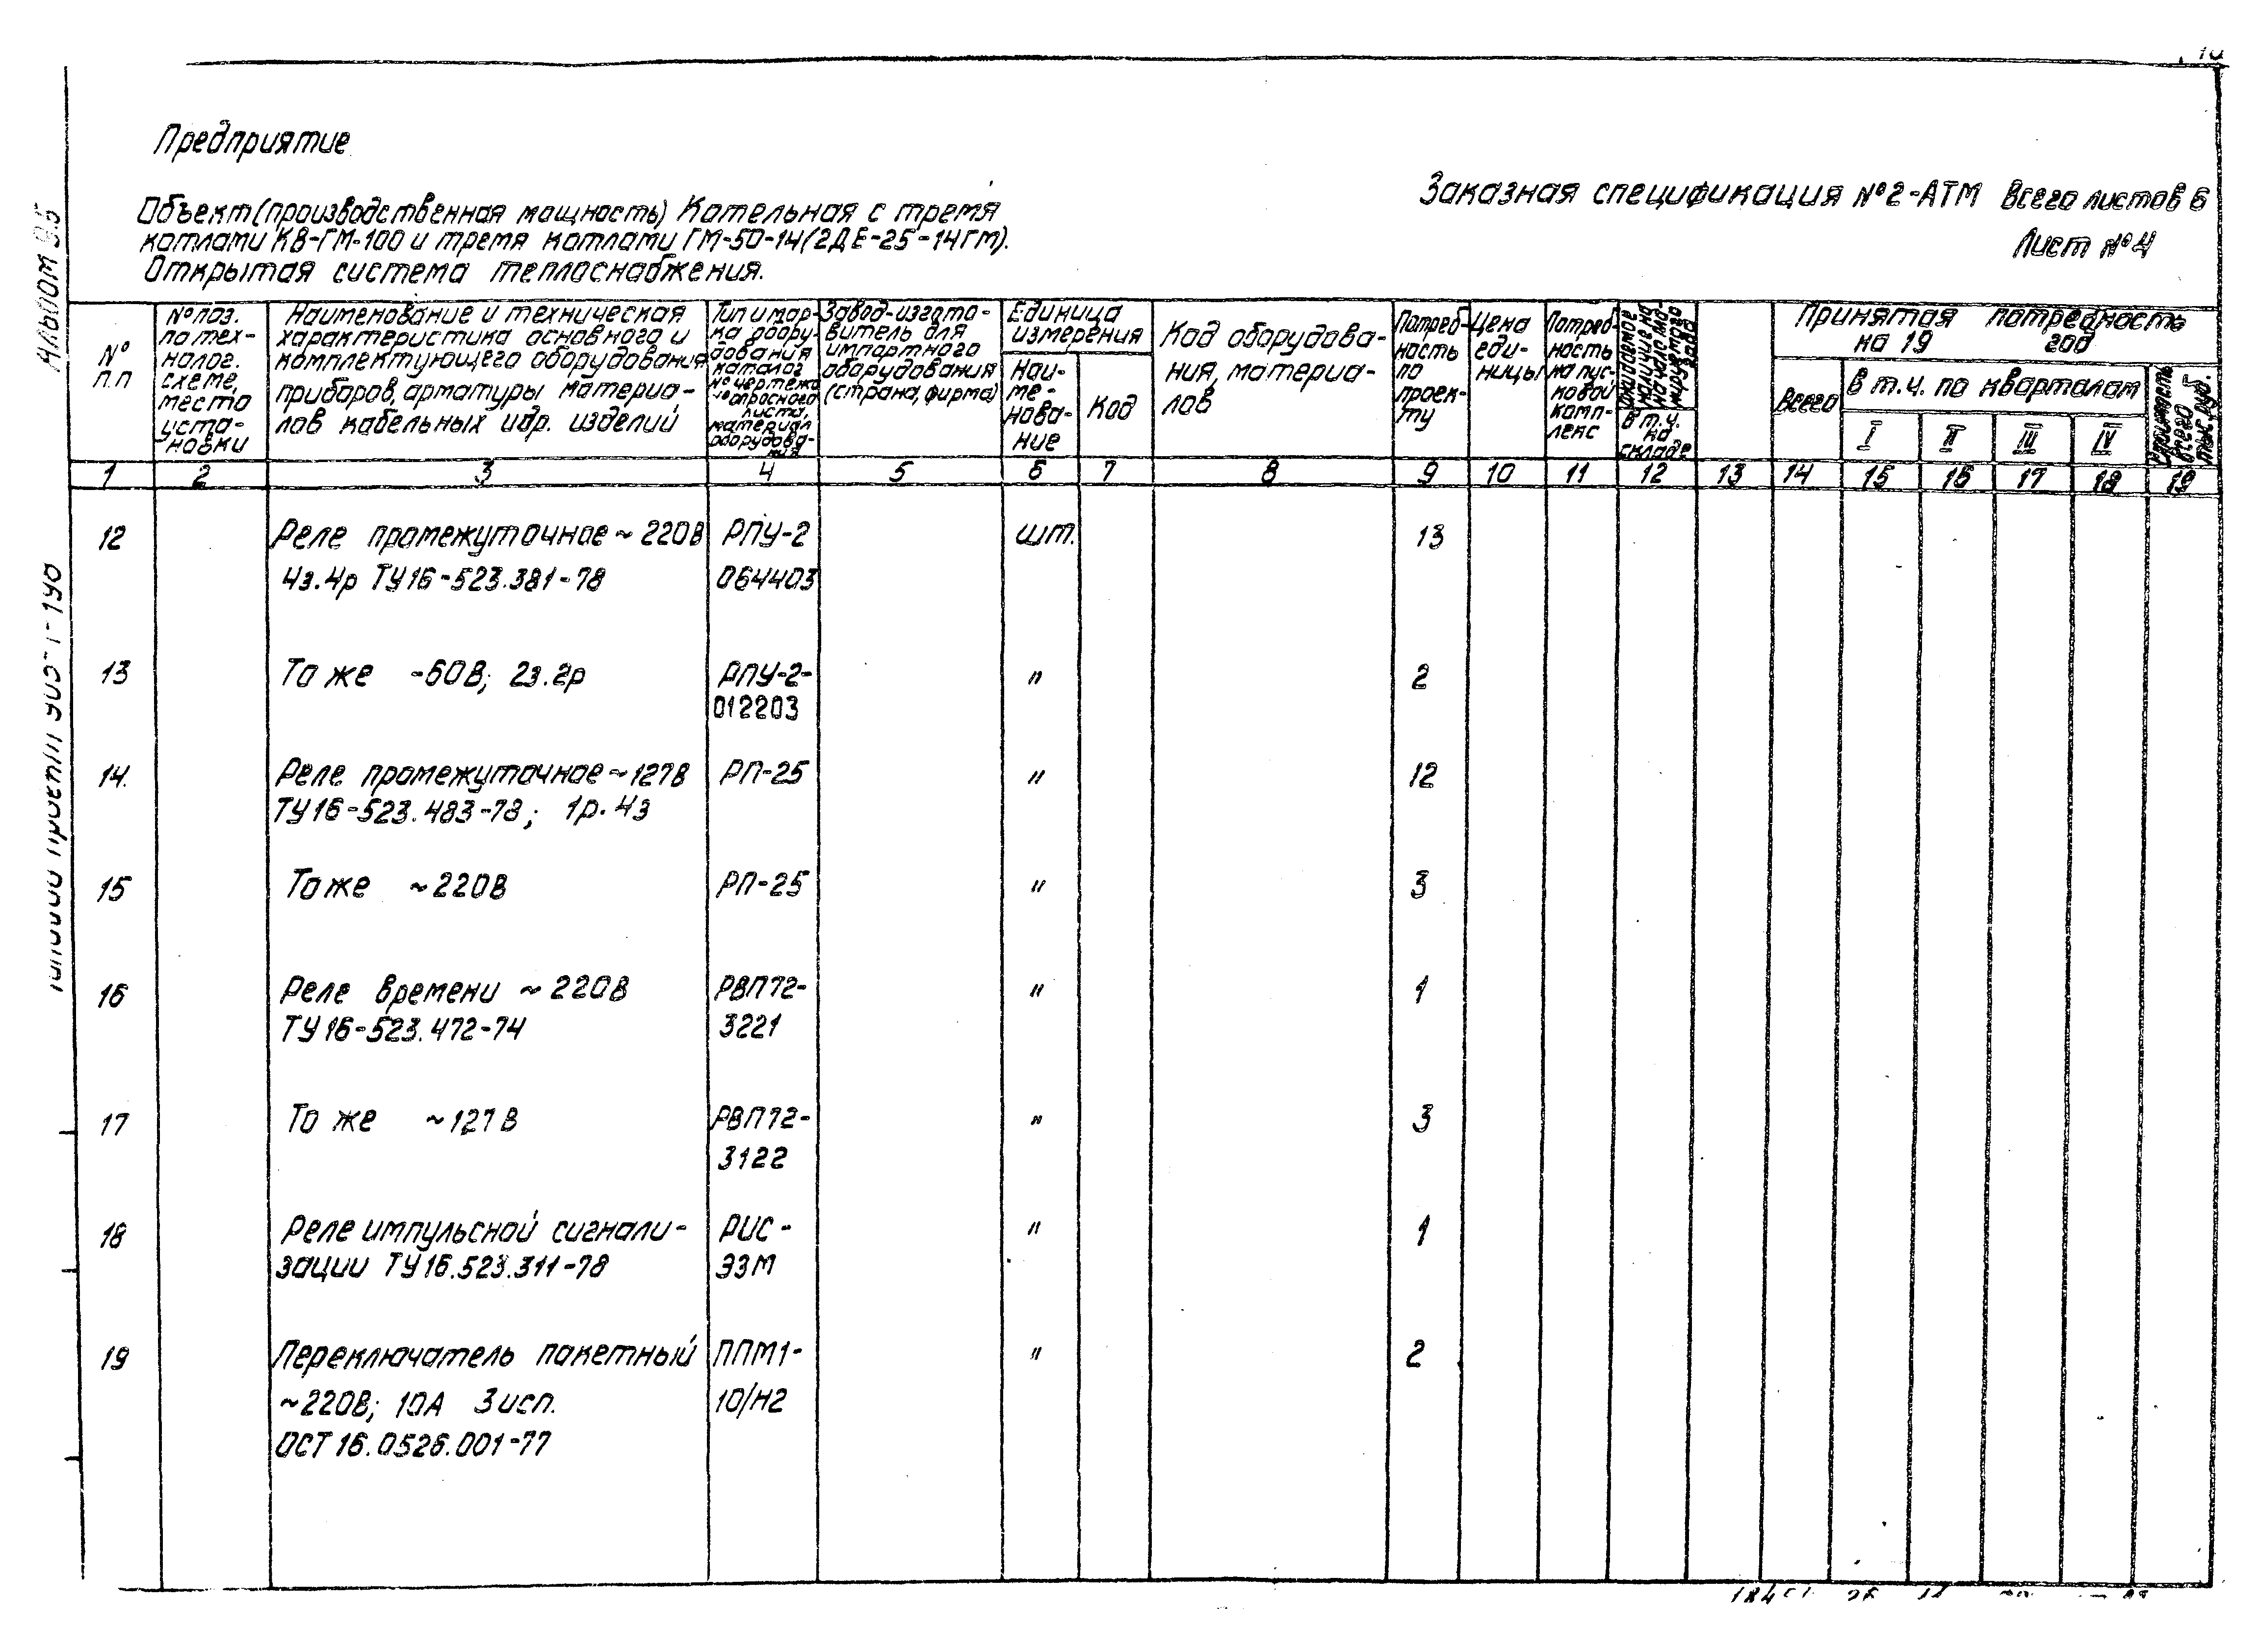 Предприятие
Заказная спецификация №2-АТМ Всего листов 6
Лист №4
Объект (производственная мощность) Котельная с тремя
котлами КВ-ГМ-100 и тремя котлами ГМ-50-14 (2ДЕ-25-14ГМ).
Открытая система теплоснабжения.
Альбом 9.5
Типовой проект
№ п.п
№ поз. по тех- нолог. схеме, место уста- новки
Наименование и техническая
характеристика основного и
комплектующего оборудования
приборов, арматуры материа-
лов кабельных и др. изделий
Тип и мар- ка обору- дования каталог № чертежа № опросного листа, материал оборудова- ния
Завод-изгото- витель для импортного оборудования (страна, фирма)
Единица измерения
Наи- ме- нова- ние
Код
Код оборудова- ния, материа- лов
Потреб- ность по проек- ту
Цена еди- ницы
Потреб- ность на пус- ковой комп- лекс
Ожидаемое наличие на начало
в т.ч. на складе
Принятая потребность
на 19 год
Всего
в т.ч. по кварталам
I II III IV
Стоимость всего тыс.руб.
1 2 3 4 5 6 7 8 9 10 11 12 13 14 15 16 17 18 19
12 Реле промежуточное ~ 220В РПУ-2 шт. 13
4з.4р ТУ16-523.381-78 064403
13 То же -60В; 2з.2р РПУ-2- " 2
012203
14. Реле промежуточное ~127В РП-25 " 12
ТУ16-523.483-78; 1р.4з
15 То же ~220В РП-25 " 3
16 Реле времени ~ 220В РВП72- " 1
ТУ16-523.472-74 3221
17 То же ~127В РВП72- " 3
3122
18 Реле импульсной сигнали- РИС- " 1
зации ТУ16.523.311-78 ЭЗМ
19 Переключатель пакетный ППМ1- " 2
~220В; 10А 3 исп. 10/Н2
ОСТ 16.0526.001-77